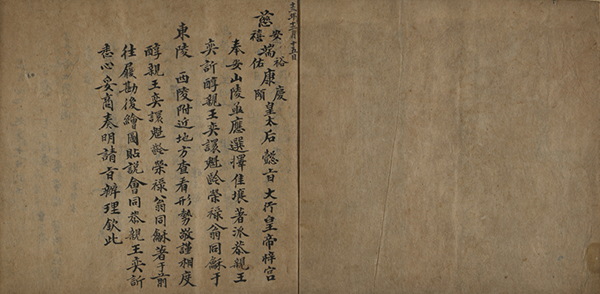 十三年十二月十五日
慈安禧端裕佑康慶頤皇太后 懿旨大行皇帝梓宮
奉安山陵亟應選擇佳壤著派恭親王
奕訢醇親王奕譞魁齡榮祿翁同龢于
東陵 西陵附近地方查看形勢敬謹相度
醇親王奕譞魁齡榮祿翁同龢著于前
往履勘後繪圖貼說會同恭親王奕訢
悉心妥商奏明請旨辦理欽此